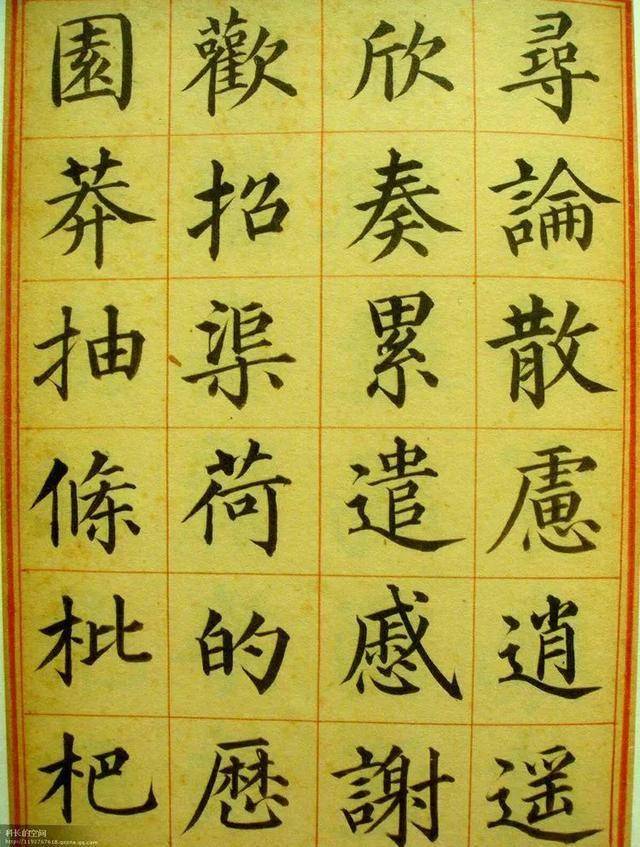 尋論散慮逍遥
欣奏累遣慼謝
歡招渠荷的歷
園莽抽條枇杷
科长的空间
http://1192767618.qzone.qq.com